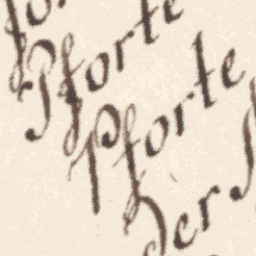 Pforte
Pforte
Der